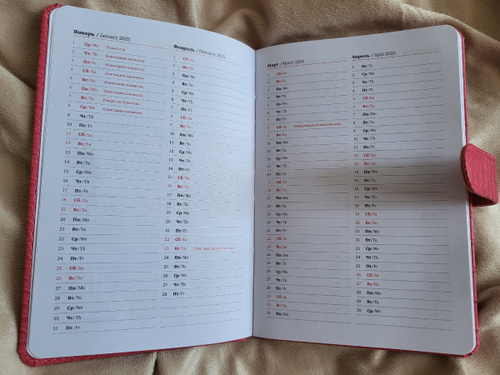 Январь / January 2025
1 Ср/We Новый год
2 Чт/Th Новогодние каникулы
3 Пт/Fr Новогодние каникулы
4 Сб/Sa Новогодние каникулы
5 Вс/Su Новогодние каникулы
6 Пн/Mo Новогодние каникулы
7 Вт/Tu Рождество Христово
8 Ср/We Новогодние каникулы
9 Чт/Th
10 Пт/Fr
11 Сб/Sa
12 Вс/Su
13 Пн/Mo
14 Вт/Tu
15 Ср/We
16 Чт/Th
17 Пт/Fr
18 Сб/Sa
19 Вс/Su
20 Пн/Mo
21 Вт/Tu
22 Ср/We
23 Чт/Th
24 Пт/Fr
25 Сб/Sa
26 Вс/Su
27 Пн/Mo
28 Вт/Tu
29 Ср/We
30 Чт/Th
31 Пт/Fr
Февраль / February 2025
1 Сб/Sa
2 Вс/Su
3 Пн/Mo
4 Вт/Tu
5 Ср/We
6 Чт/Th
7 Пт/Fr
8 Сб/Sa
9 Вс/Su
10 Пн/Mo
11 Вт/Tu
12 Ср/We
13 Чт/Th
14 Пт/Fr
15 Сб/Sa
16 Вс/Su
17 Пн/Mo
18 Вт/Tu
19 Ср/We
20 Чт/Th
21 Пт/Fr
22 Сб/Sa
23 Вс/Su
24 Пн/Mo
25 Вт/Tu
26 Ср/We
27 Чт/Th
28 Пт/Fr
Март / March 2025
1 Сб/Sa
2 Вс/Su
3 Пн/Mo
4 Вт/Tu
5 Ср/We
6 Чт/Th
7 Пт/Fr
8 Сб/Sa Международный женский день
9 Вс/Su
10 Пн/Mo
11 Вт/Tu
12 Ср/We
13 Чт/Th
14 Пт/Fr
15 Сб/Sa
16 Вс/Su
17 Пн/Mo
18 Вт/Tu
19 Ср/We
20 Чт/Th
21 Пт/Fr
22 Сб/Sa
23 Вс/Su
24 Пн/Mo
25 Вт/Tu
26 Ср/We
27 Чт/Th
28 Пт/Fr
29 Сб/Sa
30 Вс/Su
31 Пн/Mo
Апрель / April 2025
1 Вт/Tu
2 Ср/We
3 Чт/Th
4 Пт/Fr
5 Сб/Sa
6 Вс/Su
7 Пн/Mo
8 Вт/Tu
9 Ср/We
10 Чт/Th
11 Пт/Fr
12 Сб/Sa
13 Вс/Su
14 Пн/Mo
15 Вт/Tu
16 Ср/We
17 Чт/Th
18 Пт/Fr
19 Сб/Sa
20 Вс/Su
21 Пн/Mo
22 Вт/Tu
23 Ср/We
24 Чт/Th
25 Пт/Fr
26 Сб/Sa
27 Вс/Su
28 Пн/Mo
29 Вт/Tu
30 Ср/We